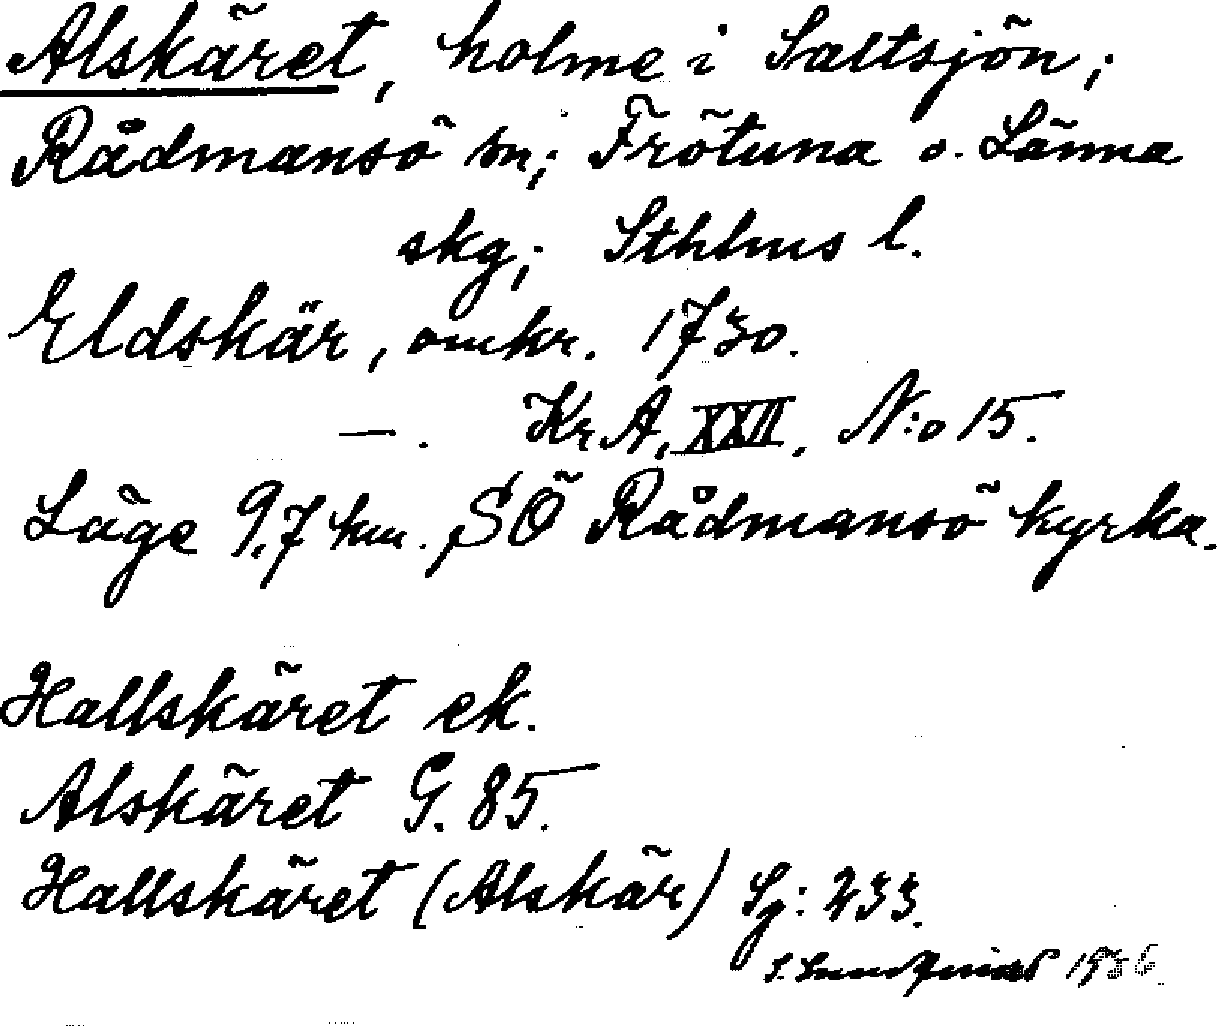 Alskäret, holme i Saltsjön;
Rådmansö sn; Frötuna o. Länna
skg; Sthlms l.
Eldskär, omkr. 1730.
—. Kr.A. XXII, N:o 15.
Läge 9,7 km. SÖ Rådmansö kyrka.
Hallskäret ek.
Alskäret G. 85.
Hallskäret (Alskär) Sj: 233.
1936.